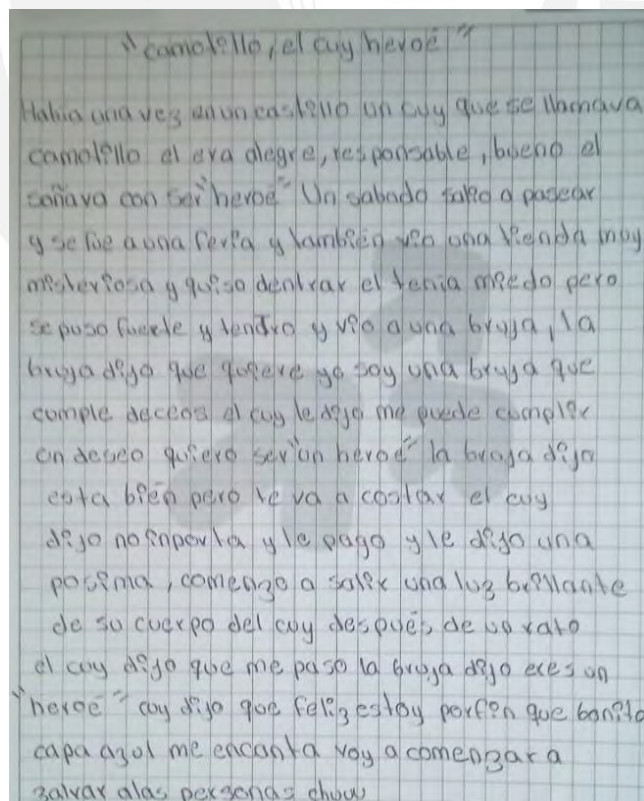 "camotello, el cuy heroé"
Habia una vez en un castillo un cuy que se llamava
camotillo el era alegre, responsable, bueno el
soñava con ser "heroé" Un sabado salio a pasear
y se fue a una feria y también vio una tienda muy
misteriosa y quiso dentrar el tenia miedo pero
se puso fuerte y tendro y vio a una bruja, la
bruja dijo que quiere yo soy una bruja que
cumple deceos el cuy le dijo me puede complir
un deseo quiero ser "un heroé" la bruja dijo
esta bien pero te va a costar el cuy
dijo no inporta y le pago y le dijo una
posima, comenzo a salir una luz brillante
de su cuerpo del cuy después de un rato
el cuy dijo que me paso la bruja dijo eres un
"heroé" cuy dijo que feliz estoy porfin que bonita
capa azul me encanta voy a comenzar a
zalvar alas personas chuw